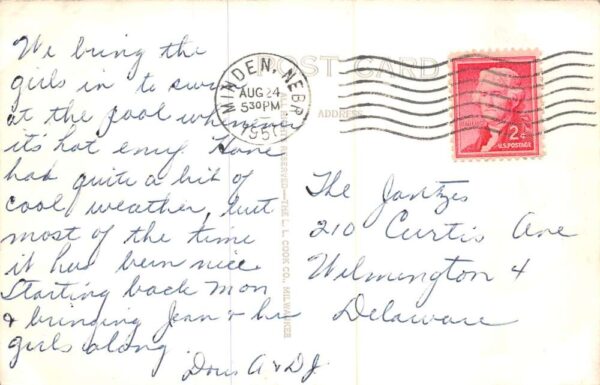 We bring the
girls in to swim
at the pool whenever
it's hot enuf. Have
had quite a bit of
cool weather, but
most of the time
it has been nice
Starting back Mon
& bringing Jean & her
girls along.
Doris A & D J.
POST CARD
ADDRESS
MINDEN, NEBR.
AUG 24
5 30 PM
ALL RIGHTS RESERVED—THE L. L. COOK CO., MILWAUKEE
2¢
U.S. POSTAGE
The Jantzes
210 Curtis Ave
Wilmington 4
Delaware